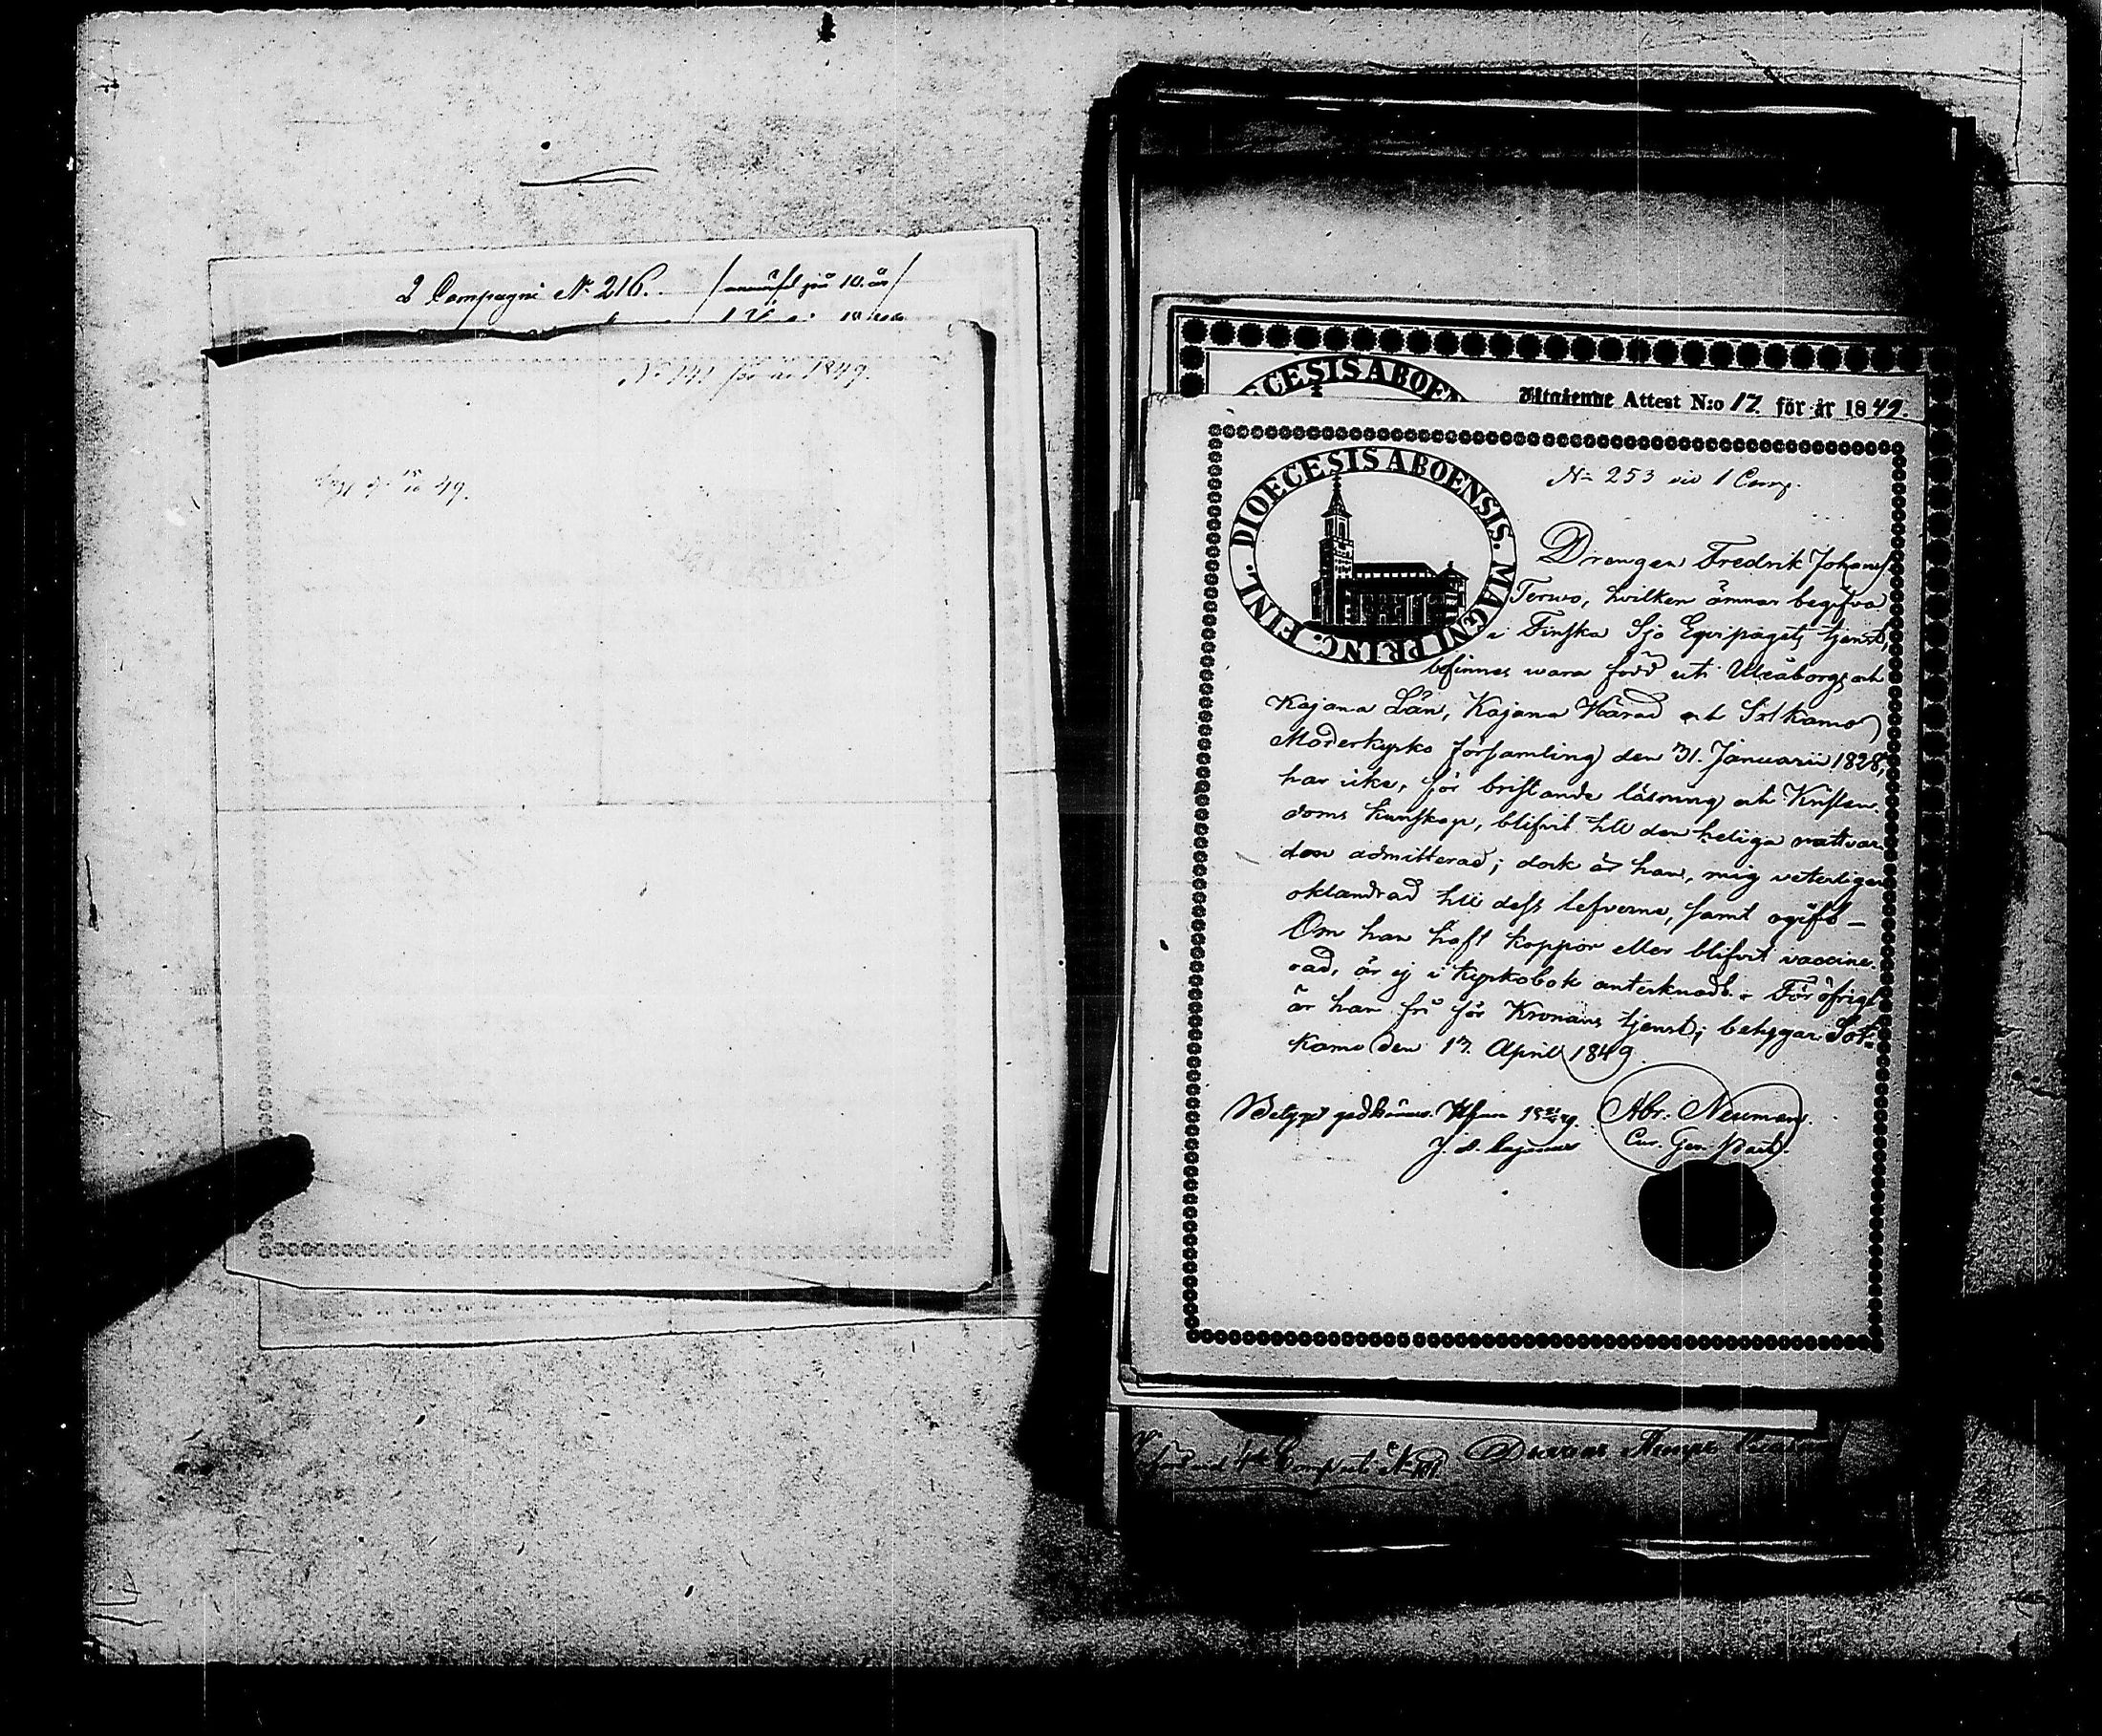 2 Compagni No 216.
No 141 för år 1849.
49.
Attest N:o 17. för år 1849.
DIOECESIS ABOENSIS. MAGNI PRINC. FINL.
No 253 vid 1 Comp.
Drengen Fredrik Johans
Terwo, hvilken ämnar begifva
i Finska Sjö Eqvipagets tjenst,
befinnes wara född uti Uleåborgs och
Kajana Län, Kajana Härad och Sotkamo
Moderkyrko församling den 31. Januarii 1828,
har icke, för bristande läsning och Kristen-
doms kunskap, blifvit till den heliga nattvar-
den admitterad; dock är han, mig veterligen
oklandrad till dess lefverne, samt ogift –
Om han haft koppor eller blifvit vaccine-
rad, är ej i kyrkobok antecknadt. – För öfrigt
är han fri för Kronans tjenst; betygar Sot-
kamo den 17. April 1849.
Abr. Neuman.
Betyget godkännes.
Duvans